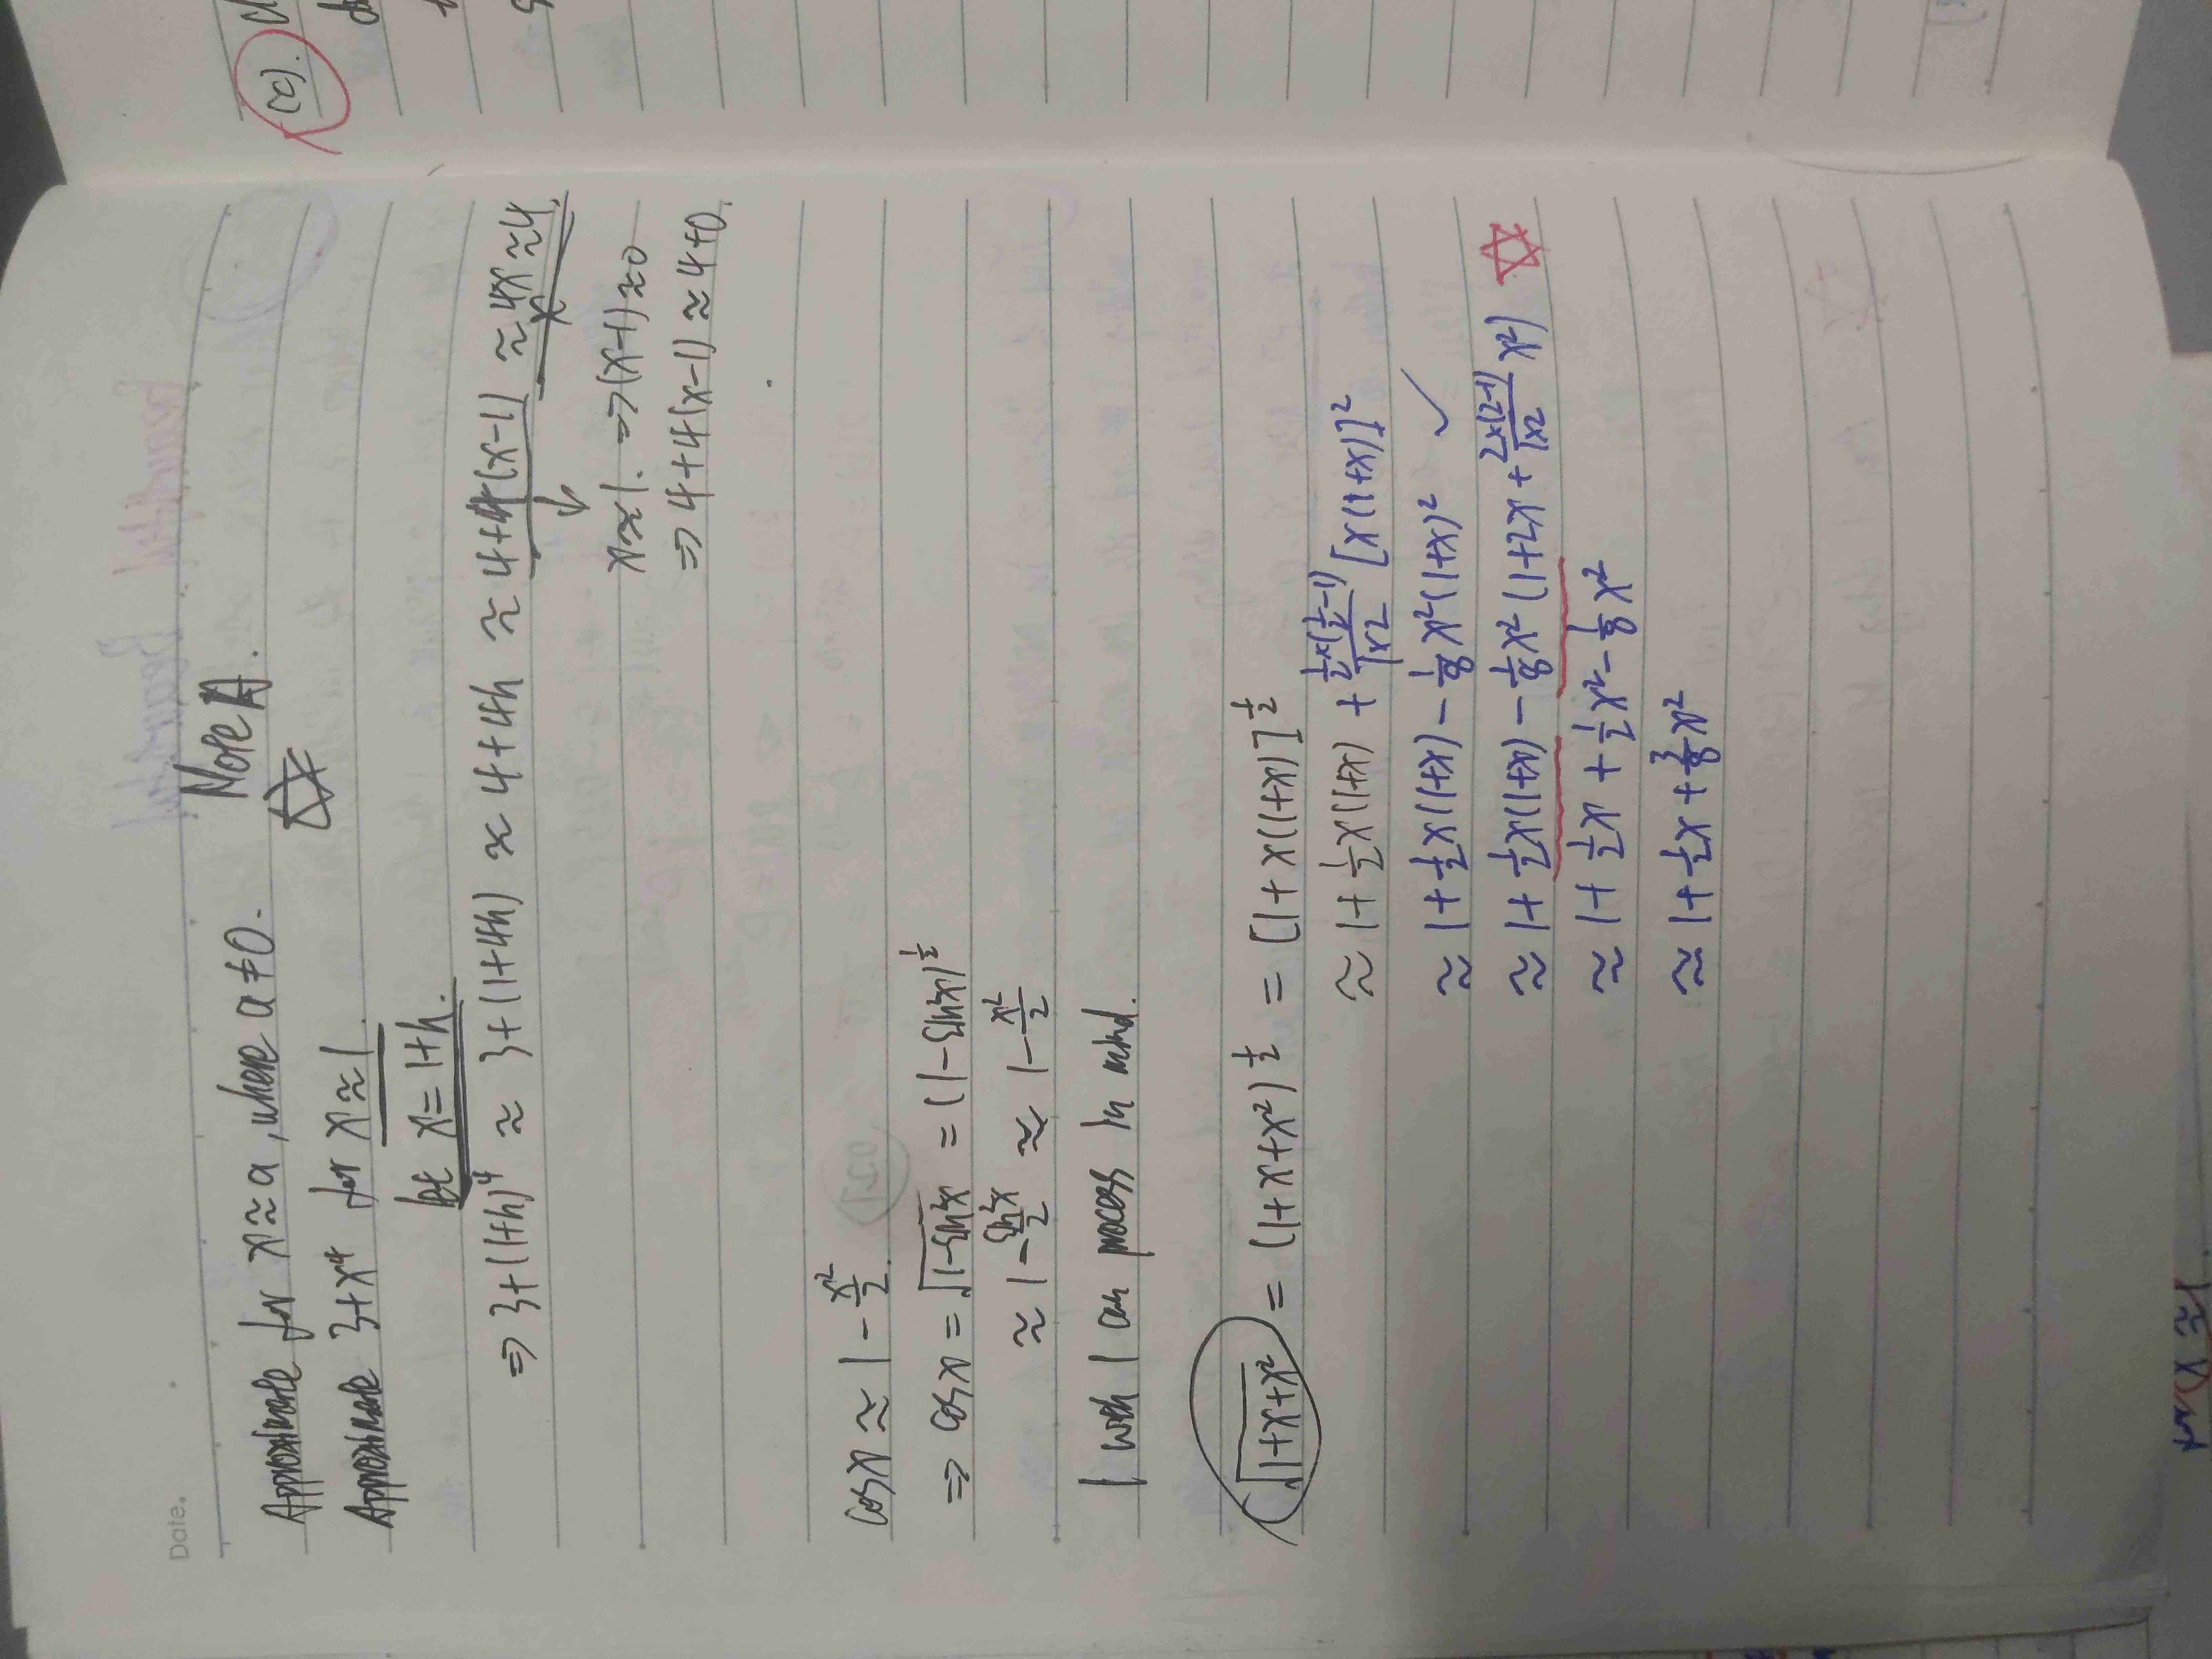 Date.
Note A.
Approximate for x ≈ a, where a ≠ 0.
Approximate 3+x⁴ for x ≈ 1.
let x = 1+h.
⇒ 3+(1+h)⁴ ≈ 3+(1+4h) ≈ 4+4h ≈ 4+4(x-1) ≈ 4x ≈ 4.
x
x≈1. ⇒ (x-1)≈0
⇒ 4+4(x-1) ≈ 4+0.
cosx ≈ 1 - x²/2.
⇒ cosx = √(1-sin²x) = (1-sin²x)^½
≈ 1 - sin²x/2 ≈ 1 - x²/2
I wish I can process in mind.
√(1+x+x²) = (1+x+x²)^½ = [1+x(1+x)]^½
≈ 1+½x(1+x) + ½×(½-1)/1×2 [x(1+x)]²
≈ 1+½x(1+x) - ⅛x²(1+x)² ✓
≈ 1+½x(1+x) - ⅛x²(1+2x+ 2×(2-1)/1×2 x²)
≈ 1+½x+½x²-⅛x²
≈ 1+½x+⅜x²
(c).